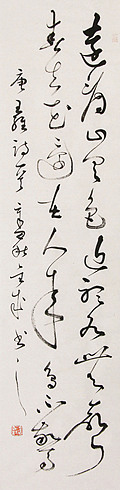 远看山有色近听水无声
春去花还在人来鸟不惊
唐王维诗